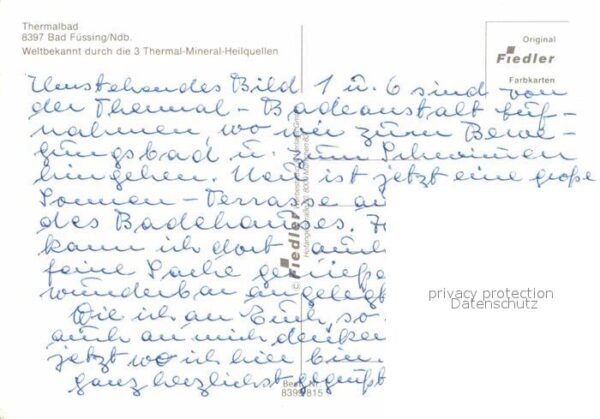 Thermalbad
8397 Bad Füssing/Ndb.
Weltbekannt durch die 3 Thermal-Mineral-Heilquellen
Original
Fiedler
Farbkarten
Umstehendes Bild 1 u. 6 sind von
der Thermal-Badeanstalt Auf-
nahmen, wo wir zum Bewe-
gungsbad u. zum Schwimmen
hingehen. Nun ist jetzt eine große
Sonnen-Terrasse an
des Badehauses.
kann ich dort auch
feine Sache genieße
wunderbar angelegt
Die ich an Euch, so
auch an mich denken
jetzt wo ich hier bin.
ganz herzlichst gegrüßt
© Fiedler
Best. Nr.
8399 815
privacy protection
Datenschutz